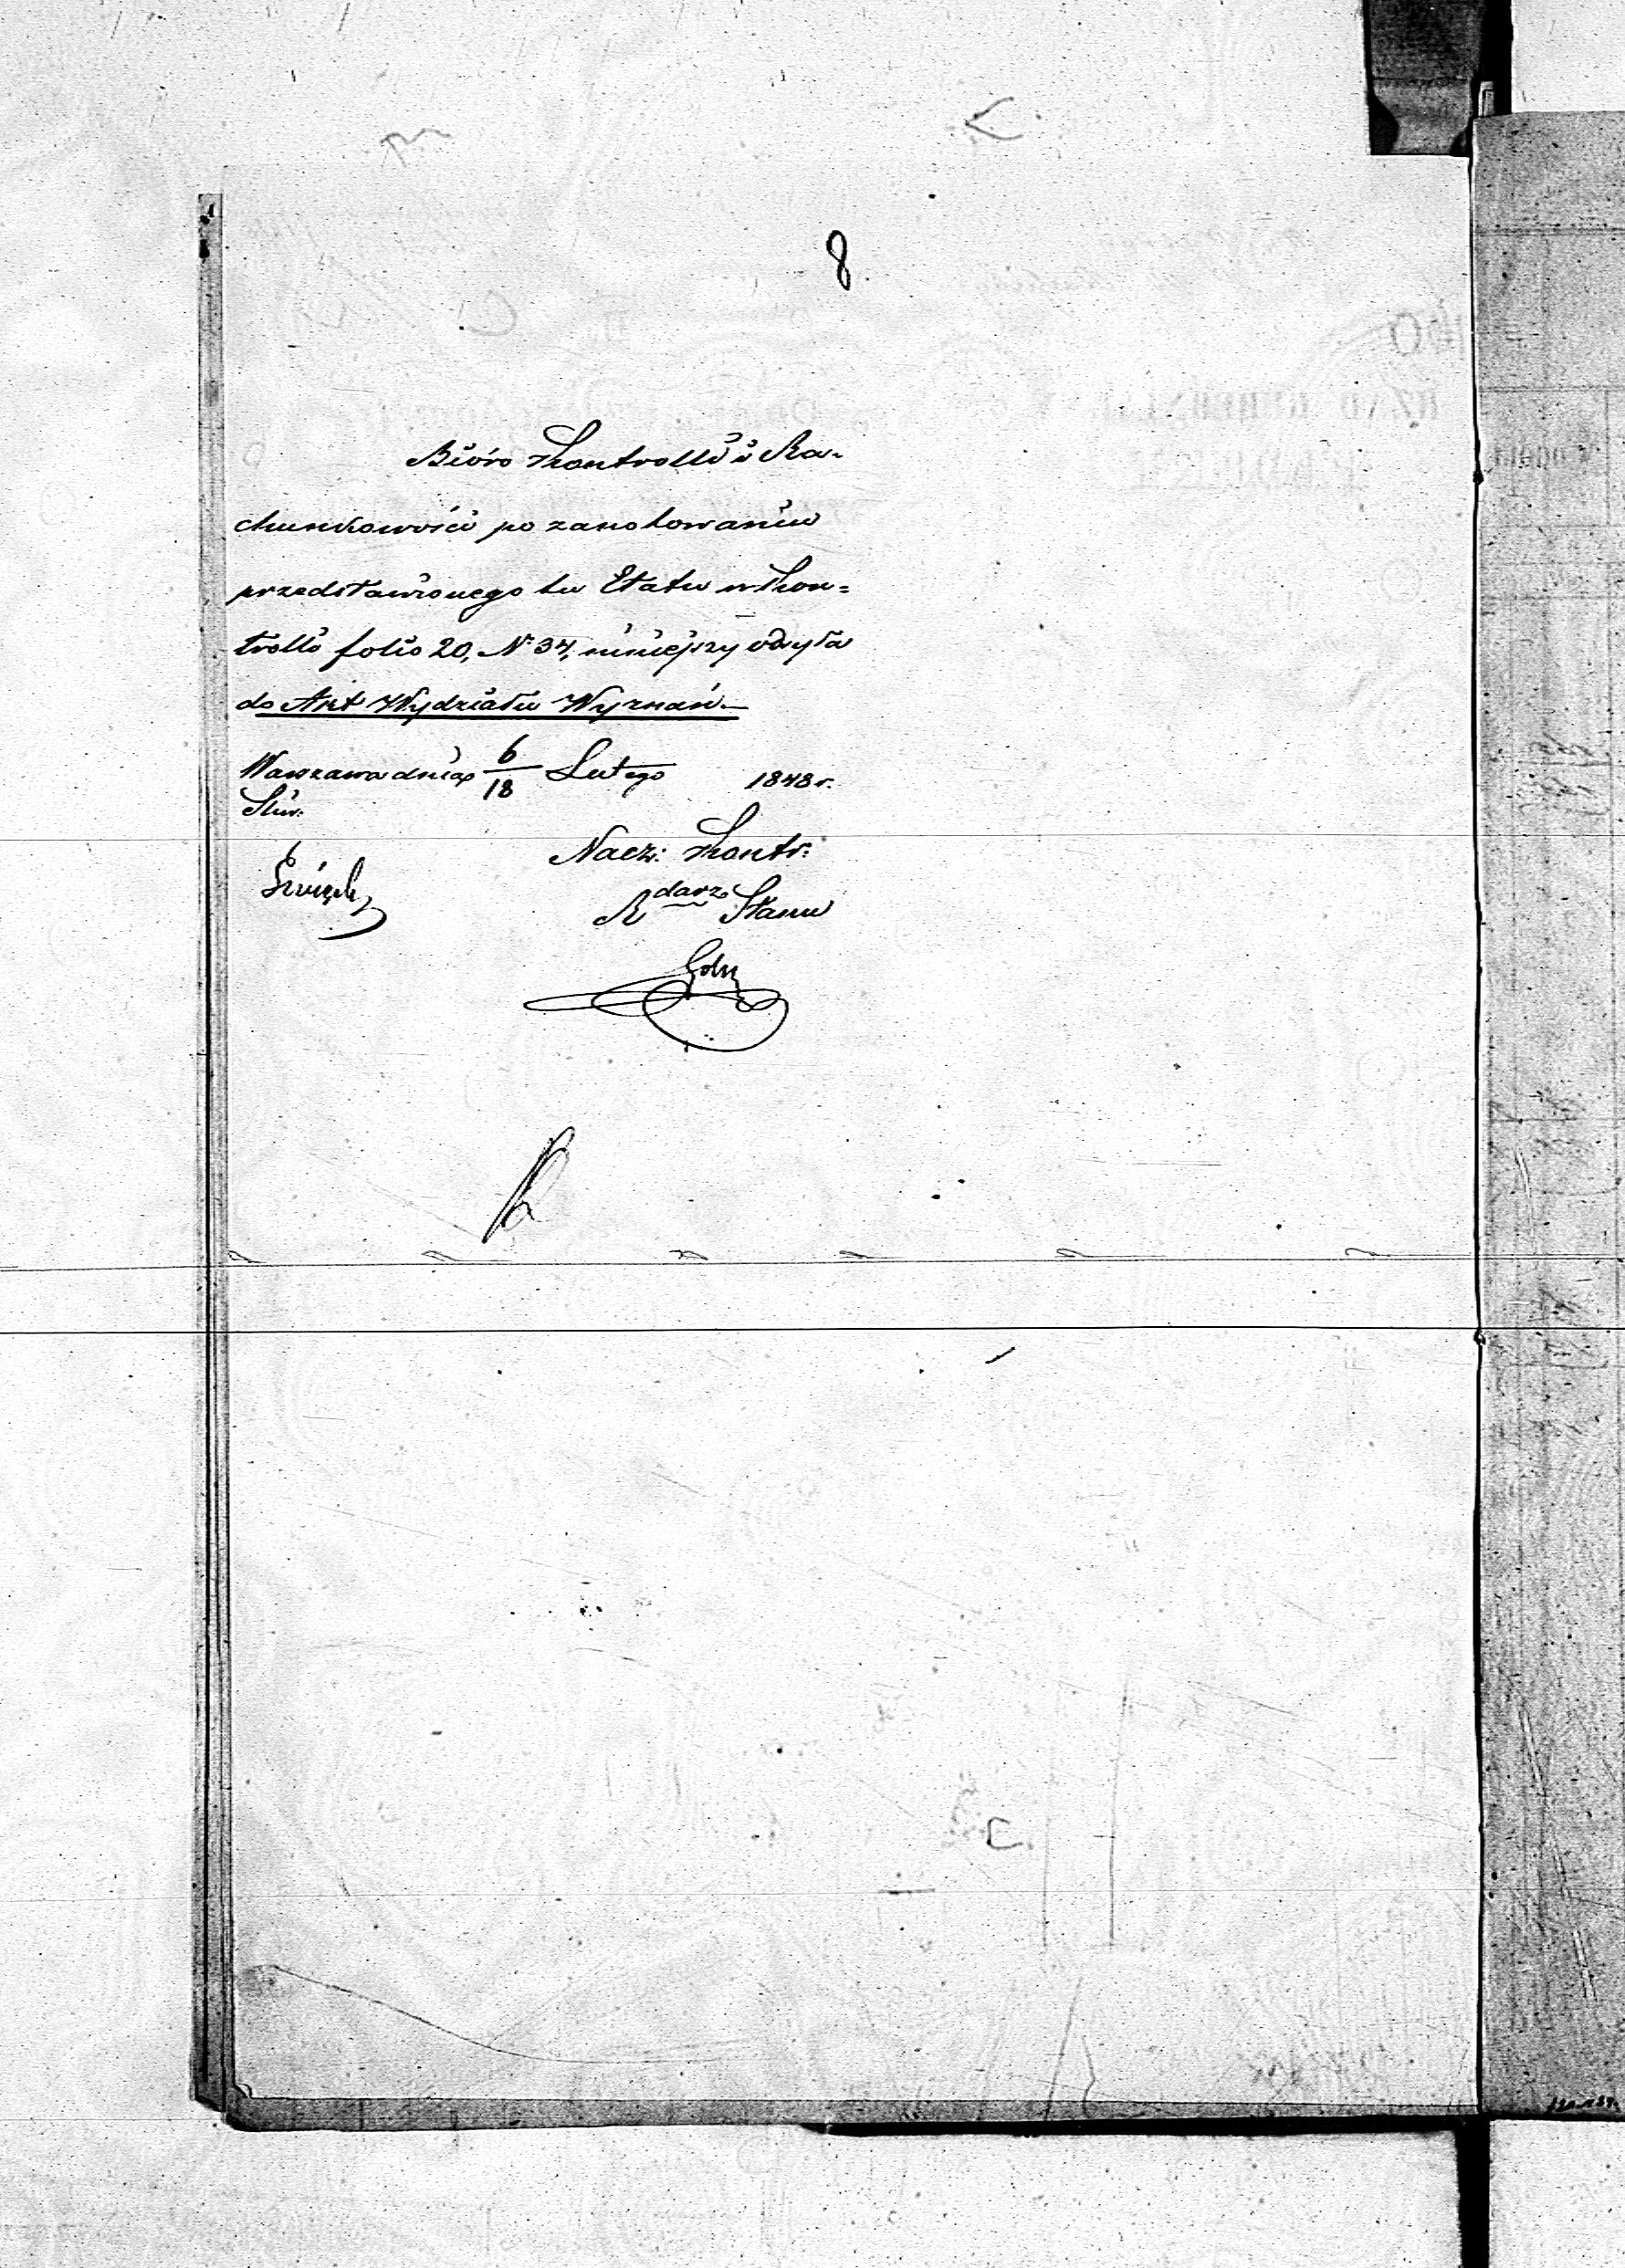 8
Bióro Kontrolli i Ra-
chunkowości po zanotowaniu
przedstawionego tu Etatu w Kon=
trolli folio 20, N° 34, niniejszy odsyła
do Akt Wydziału Wyznań.
Warszawa dnia 6/18 Lutego 1848 r.
Nacz: Kontr:
R darz Stanu